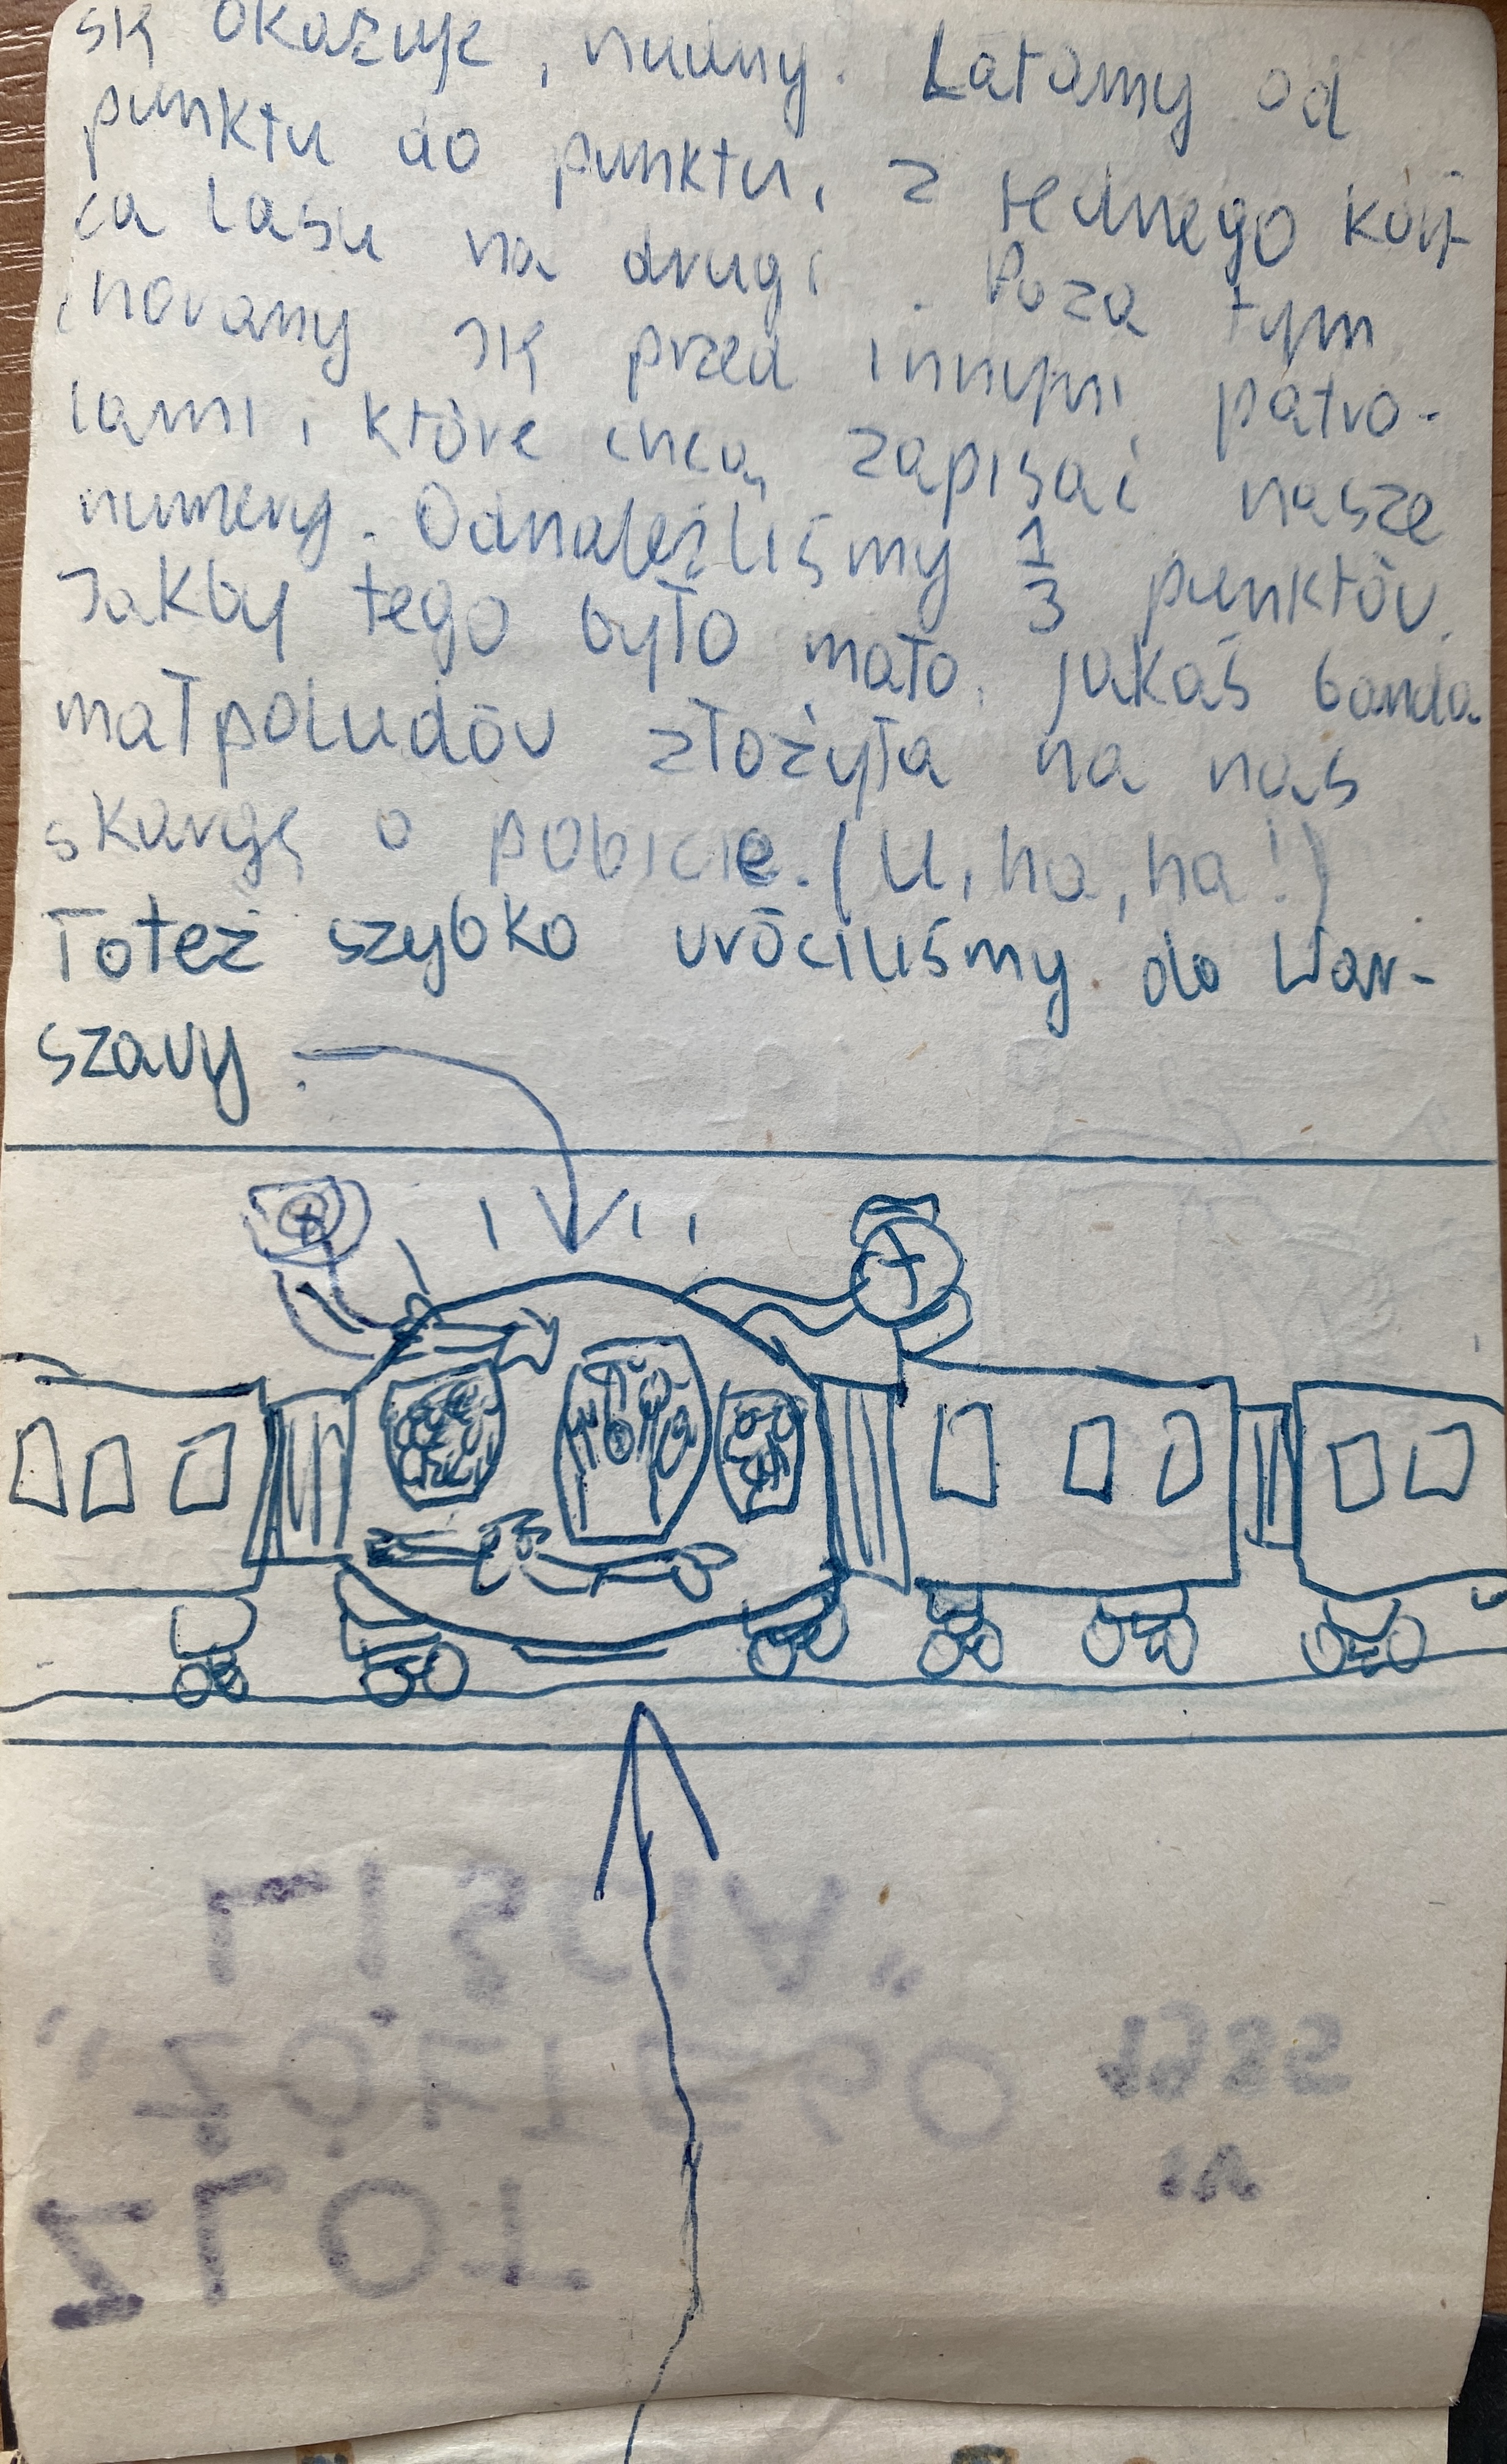 się okazuje, nudny. Latamy od
punktu do punktu, z jednego koń-
ca lasu na drugi. Poza tym
chowamy się przed innymi patro-
lami, które chcą zapisać nasze
numery. Odnaleźliśmy 1/3 punktów.
Jakby tego było mało, jakaś banda
małpoludów złożyła na nas
skargę o pobicie. (U, ha, ha!)
Toteż szybko wróciliśmy do War-
szawy.
LIŚCIA"
"ŻÓŁTEGO 1985
ZLOT